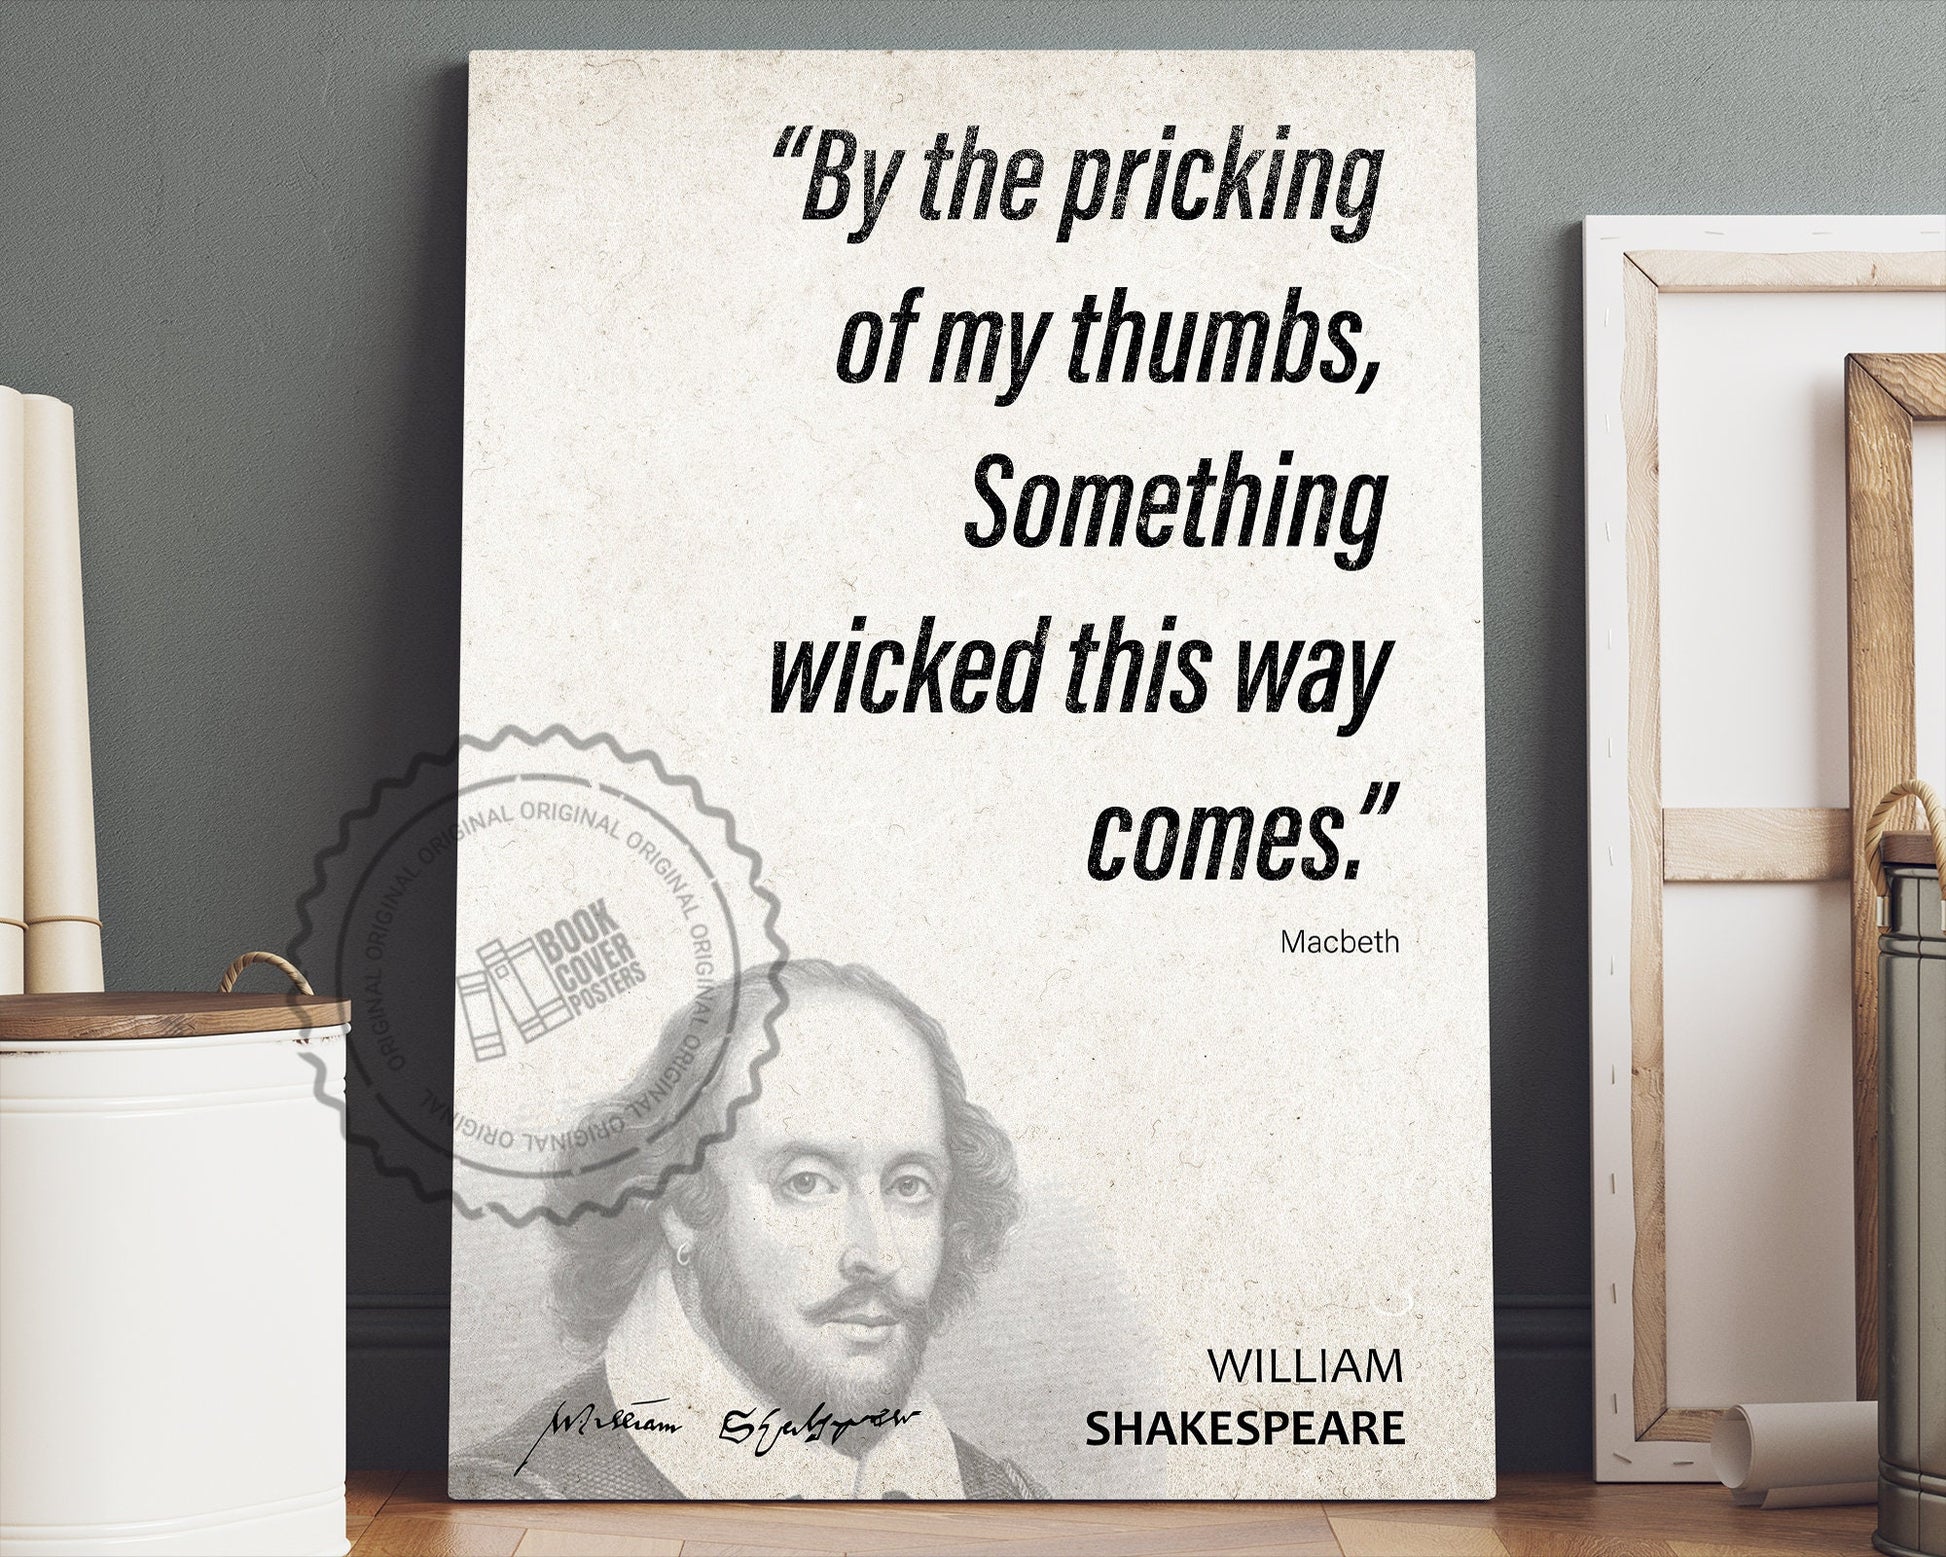 “By the pricking
of my thumbs,
Something
wicked this way
comes.”
Macbeth
ORIGINAL ORIGINAL ORIGINAL ORIGINAL ORIGINAL ORIGINAL ORIGINAL ORIGINAL ORIGINAL ORIGINAL
BOOK
COVER
POSTERS
William Shakspear
WILLIAM
SHAKESPEARE